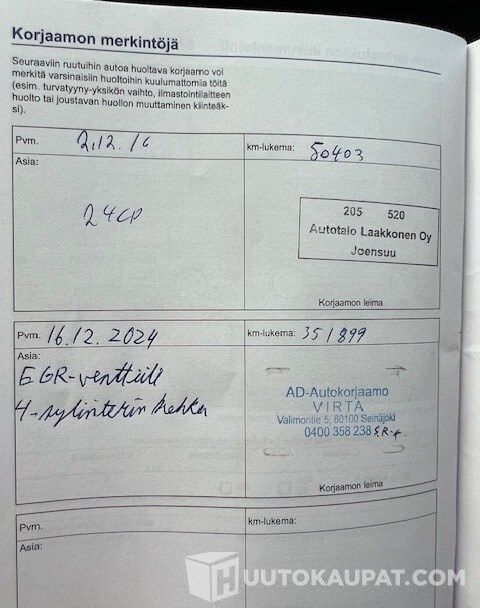 Korjaamon merkintöjä
Seuraaviin ruutuihin autoa huoltava korjaamo voi
merkitä varsinaisiin huoltoihin kuulumattomia töitä
(esim. turvatyyny-yksikön vaihto, ilmastointilaitteen
huolto tai joustavan huollon muuttaminen kiinteäk-
si).
Pvm. 2.12.16
km-lukema: 50403
Asia:
24CP
205 520
Autotalo Laakkonen Oy
Joensuu
Korjaamon leima
Pvm. 16.12.2024
km-lukema: 351899
Asia:
EGR-venttiili
4-sylinterin hehku
AD-Autokorjaamo
VIRTA
Valimontie 5, 60100 Seinäjoki
0400 358 238
Korjaamon leima
Pvm.
km-lukema:
Asia:
HUUTOKAUPAT.COM